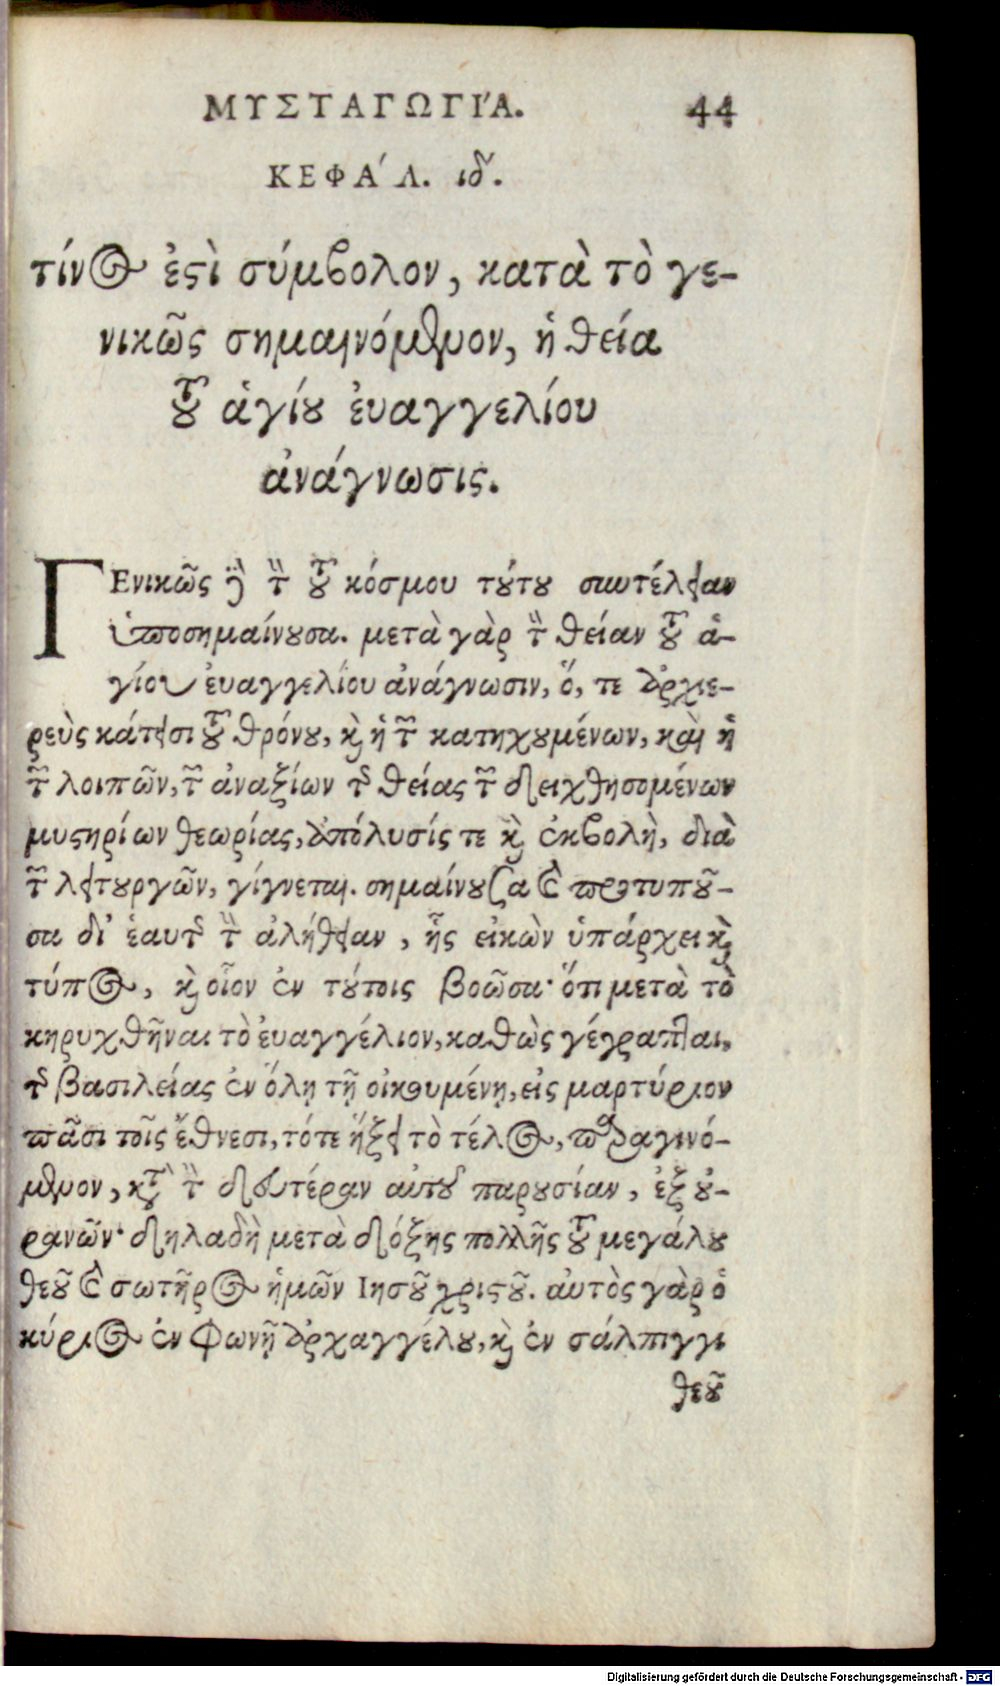 ΜΥΣΤΑΓΩΓΙΆ. 44
ΚΕΦΆΛ. ιδ.
τίνος ἐστὶ σύμβολον, κατὰ τὸ γε-
νικῶς σημαινόμενον, ἡ θεία
τοῦ ἁγίου ἐυαγγελίου
ἀνάγνωσις.
ΓΕνικῶς δὲ τὴν τοῦ κόσμου τούτου συντέλειαν
ὑποσημαίνουσα. μετὰ γὰρ τὴν θείαν τοῦ ἁ-
γίου ἐυαγγελίου ἀνάγνωσιν, ὅ, τε ἀρχιε-
ρεὺς κάτεισι τοῦ θρόνου, καὶ ἡ τῶν κατηχουμένων, καὶ ἡ
τῶν λοιπῶν, τῶν ἀναξίων τῆς θείας τῶν δειχθησομένων
μυστηρίων θεωρίας, ἀπόλυσίς τε καὶ ἐκβολὴ, διὰ
τῶν λειτουργῶν, γίγνεται. σημαίνουσα καὶ προτυποῦ-
σα δι' ἑαυτῆς τὴν ἀλήθειαν, ἧς εἰκὼν ὑπάρχει καὶ
τύπος, καὶ οἷον ἐν τούτοις βοῶσα· ὅτι μετὰ τὸ
κηρυχθῆναι τὸ ἐυαγγέλιον, καθὼς γέγραπται,
τῆς βασιλείας ἐν ὅλῃ τῇ οἰκουμένῃ, εἰς μαρτύριον
πᾶσι τοῖς ἔθνεσι, τότε ἥξει τὸ τέλος, παραγινό-
μενον, κατὰ τὴν δευτέραν αὐτοῦ παρουσίαν, ἐξ οὐ-
ρανῶν· δηλαδὴ μετὰ δόξης πολλῆς τοῦ μεγάλου
θεοῦ καὶ σωτῆρος ἡμῶν Ιησοῦ χριστοῦ. αὐτὸς γὰρ ὁ
κύριος ἐν φωνῇ ἀρχαγγέλου, καὶ ἐν σάλπιγγι
θεοῦ
Digitalisierung gefördert durch die Deutsche Forschungsgemeinschaft - DFG